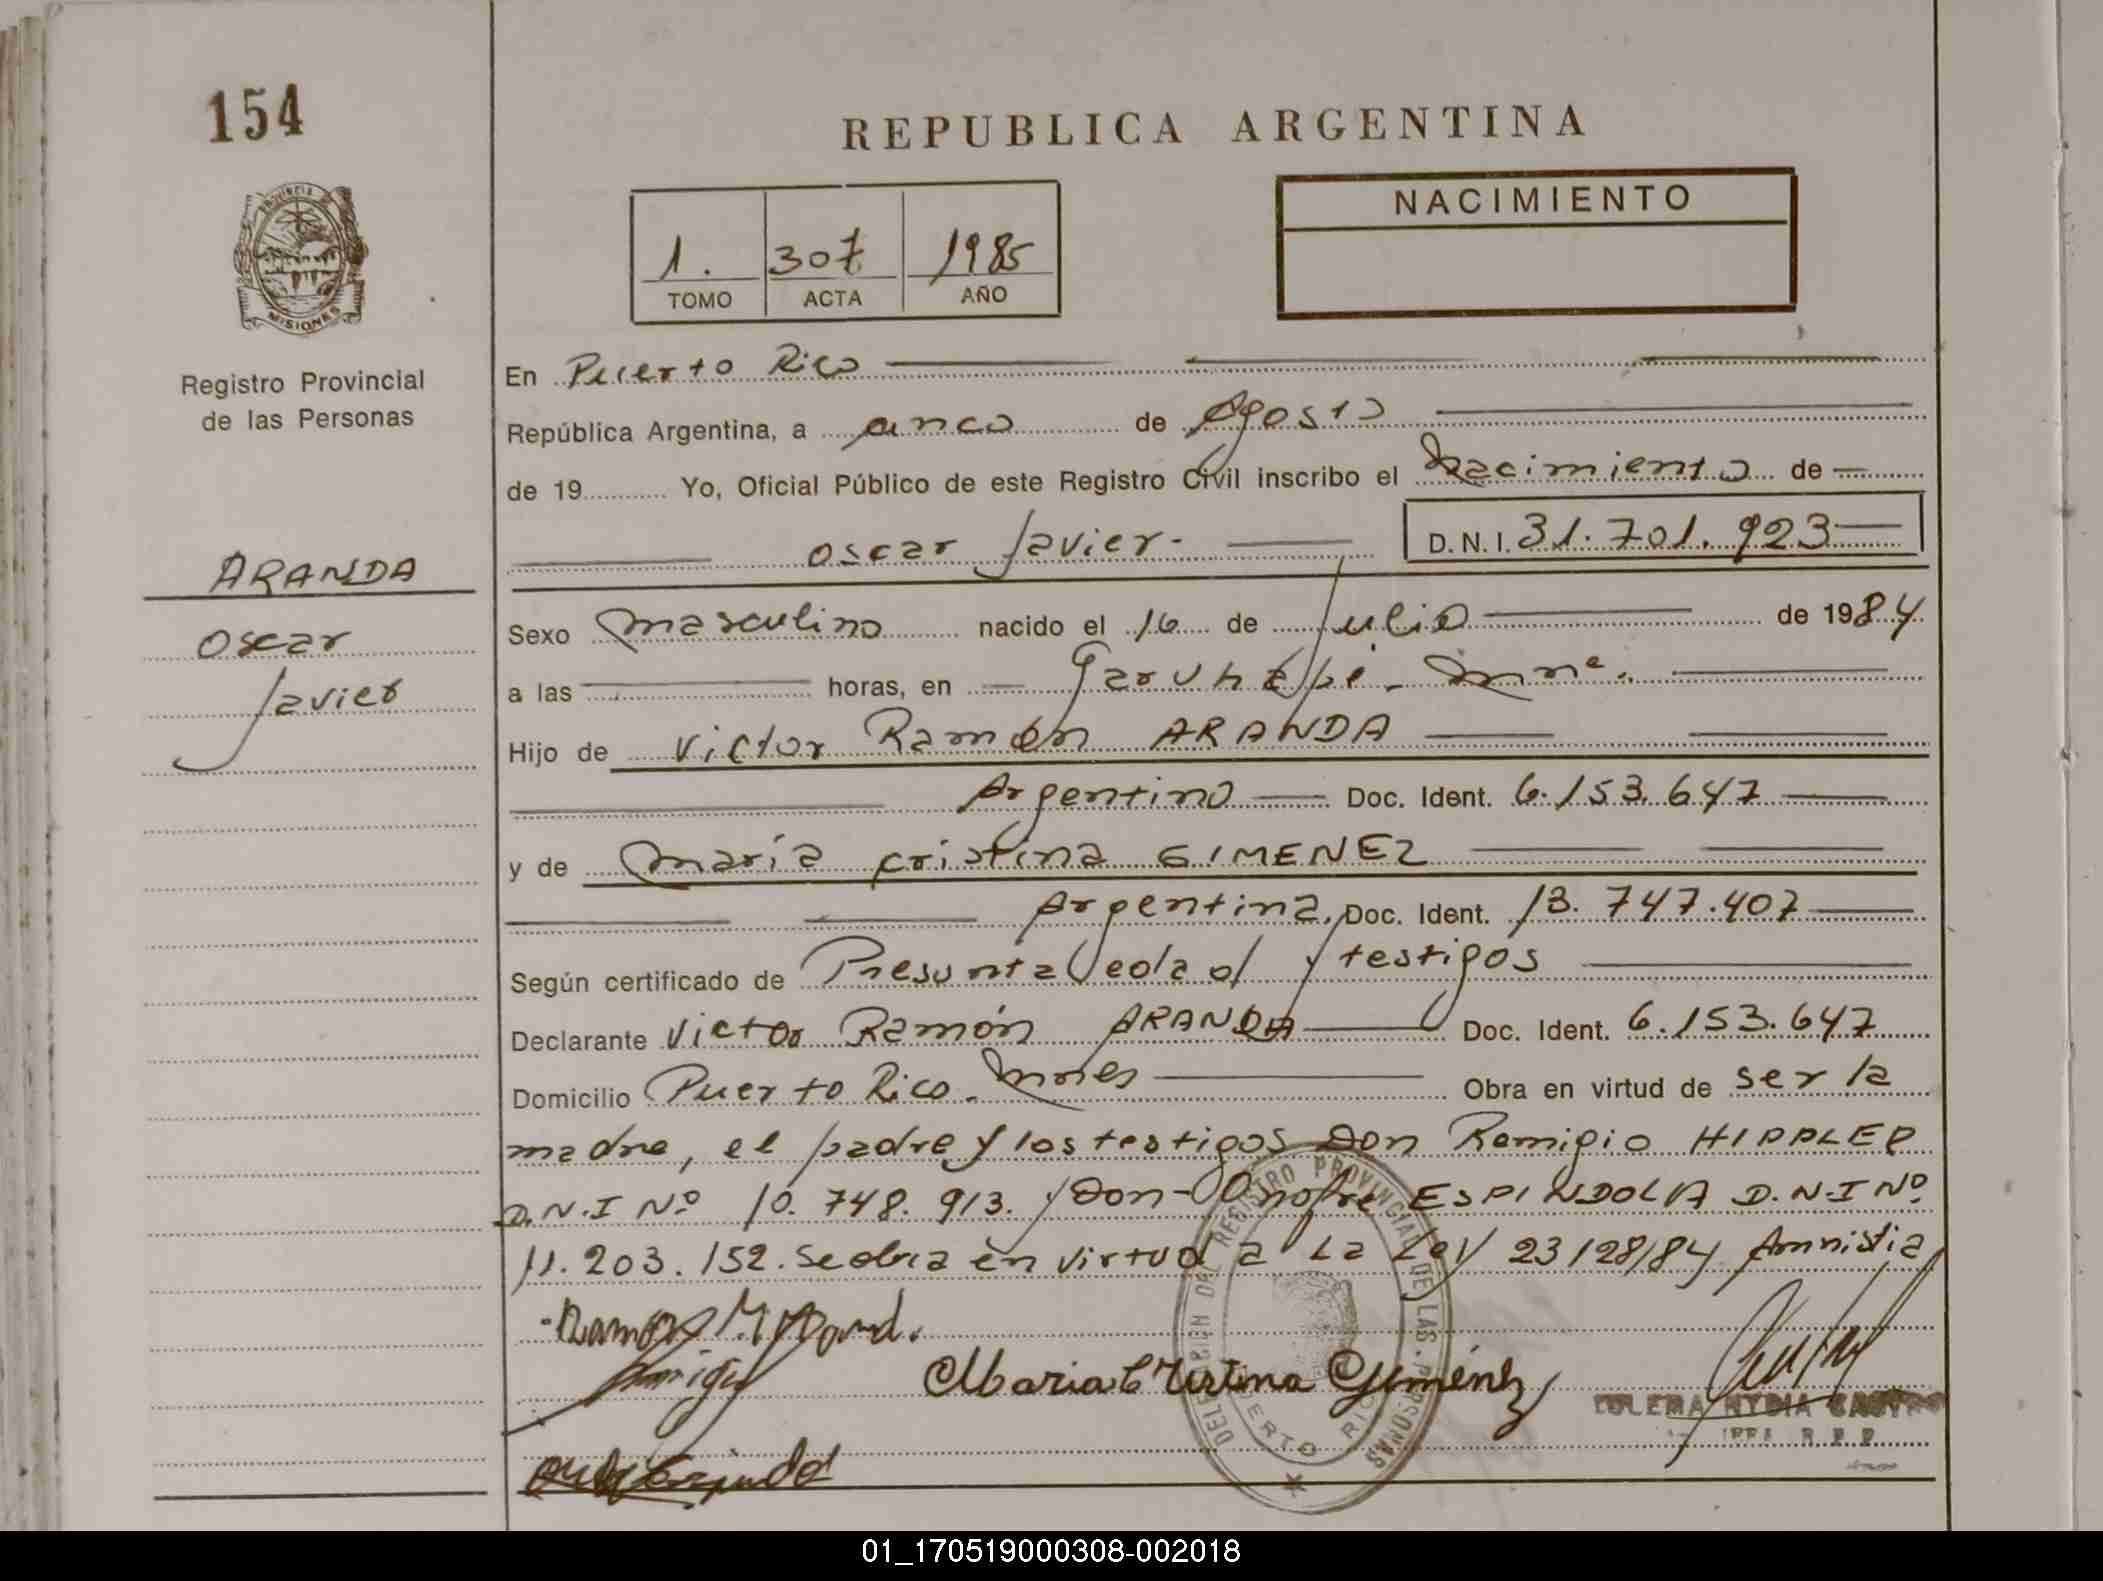 154
REPUBLICA ARGENTINA
PROVINCIA
MISIONES
1. 307 1985
TOMO ACTA AÑO
NACIMIENTO
Registro Provincial
de las Personas
ARANDA
Oscar
Javier
En Puerto Rico
República Argentina, a cinco de Agosto
de 19 Yo, Oficial Público de este Registro Civil inscribo el Nacimiento de
Oscar Javier- D.N.I. 31.701.923
Sexo masculino nacido el 16 de Julio de 1984
a las horas, en Garuhapé. Mnes.
Hijo de Victor Ramón ARANDA
Argentino Doc. Ident. 6.153.647
y de María Cristina GIMENEZ
Argentina, Doc. Ident. 13.747.407
Según certificado de Presunta edad y testigos
Declarante Victor Ramón ARANDA Doc. Ident. 6.153.647
Domicilio Puerto Rico. Mnes Obra en virtud de ser la
madre, el padre y los testigos Don Remigio HIPPLER
D.N.I Nº 10.748.913. y Don- Onofre ESPINDOLA D.N.I Nº
11.203.152. Se obra en virtud a La Ley 23128/84 Amnistia
Maria Cristina Giménez
DELEGACION DEL REGISTRO PROVINCIAL DE LAS PERSONAS
PUERTO RICO
ZULEMA NYDIA CASTRO
01_170519000308-002018